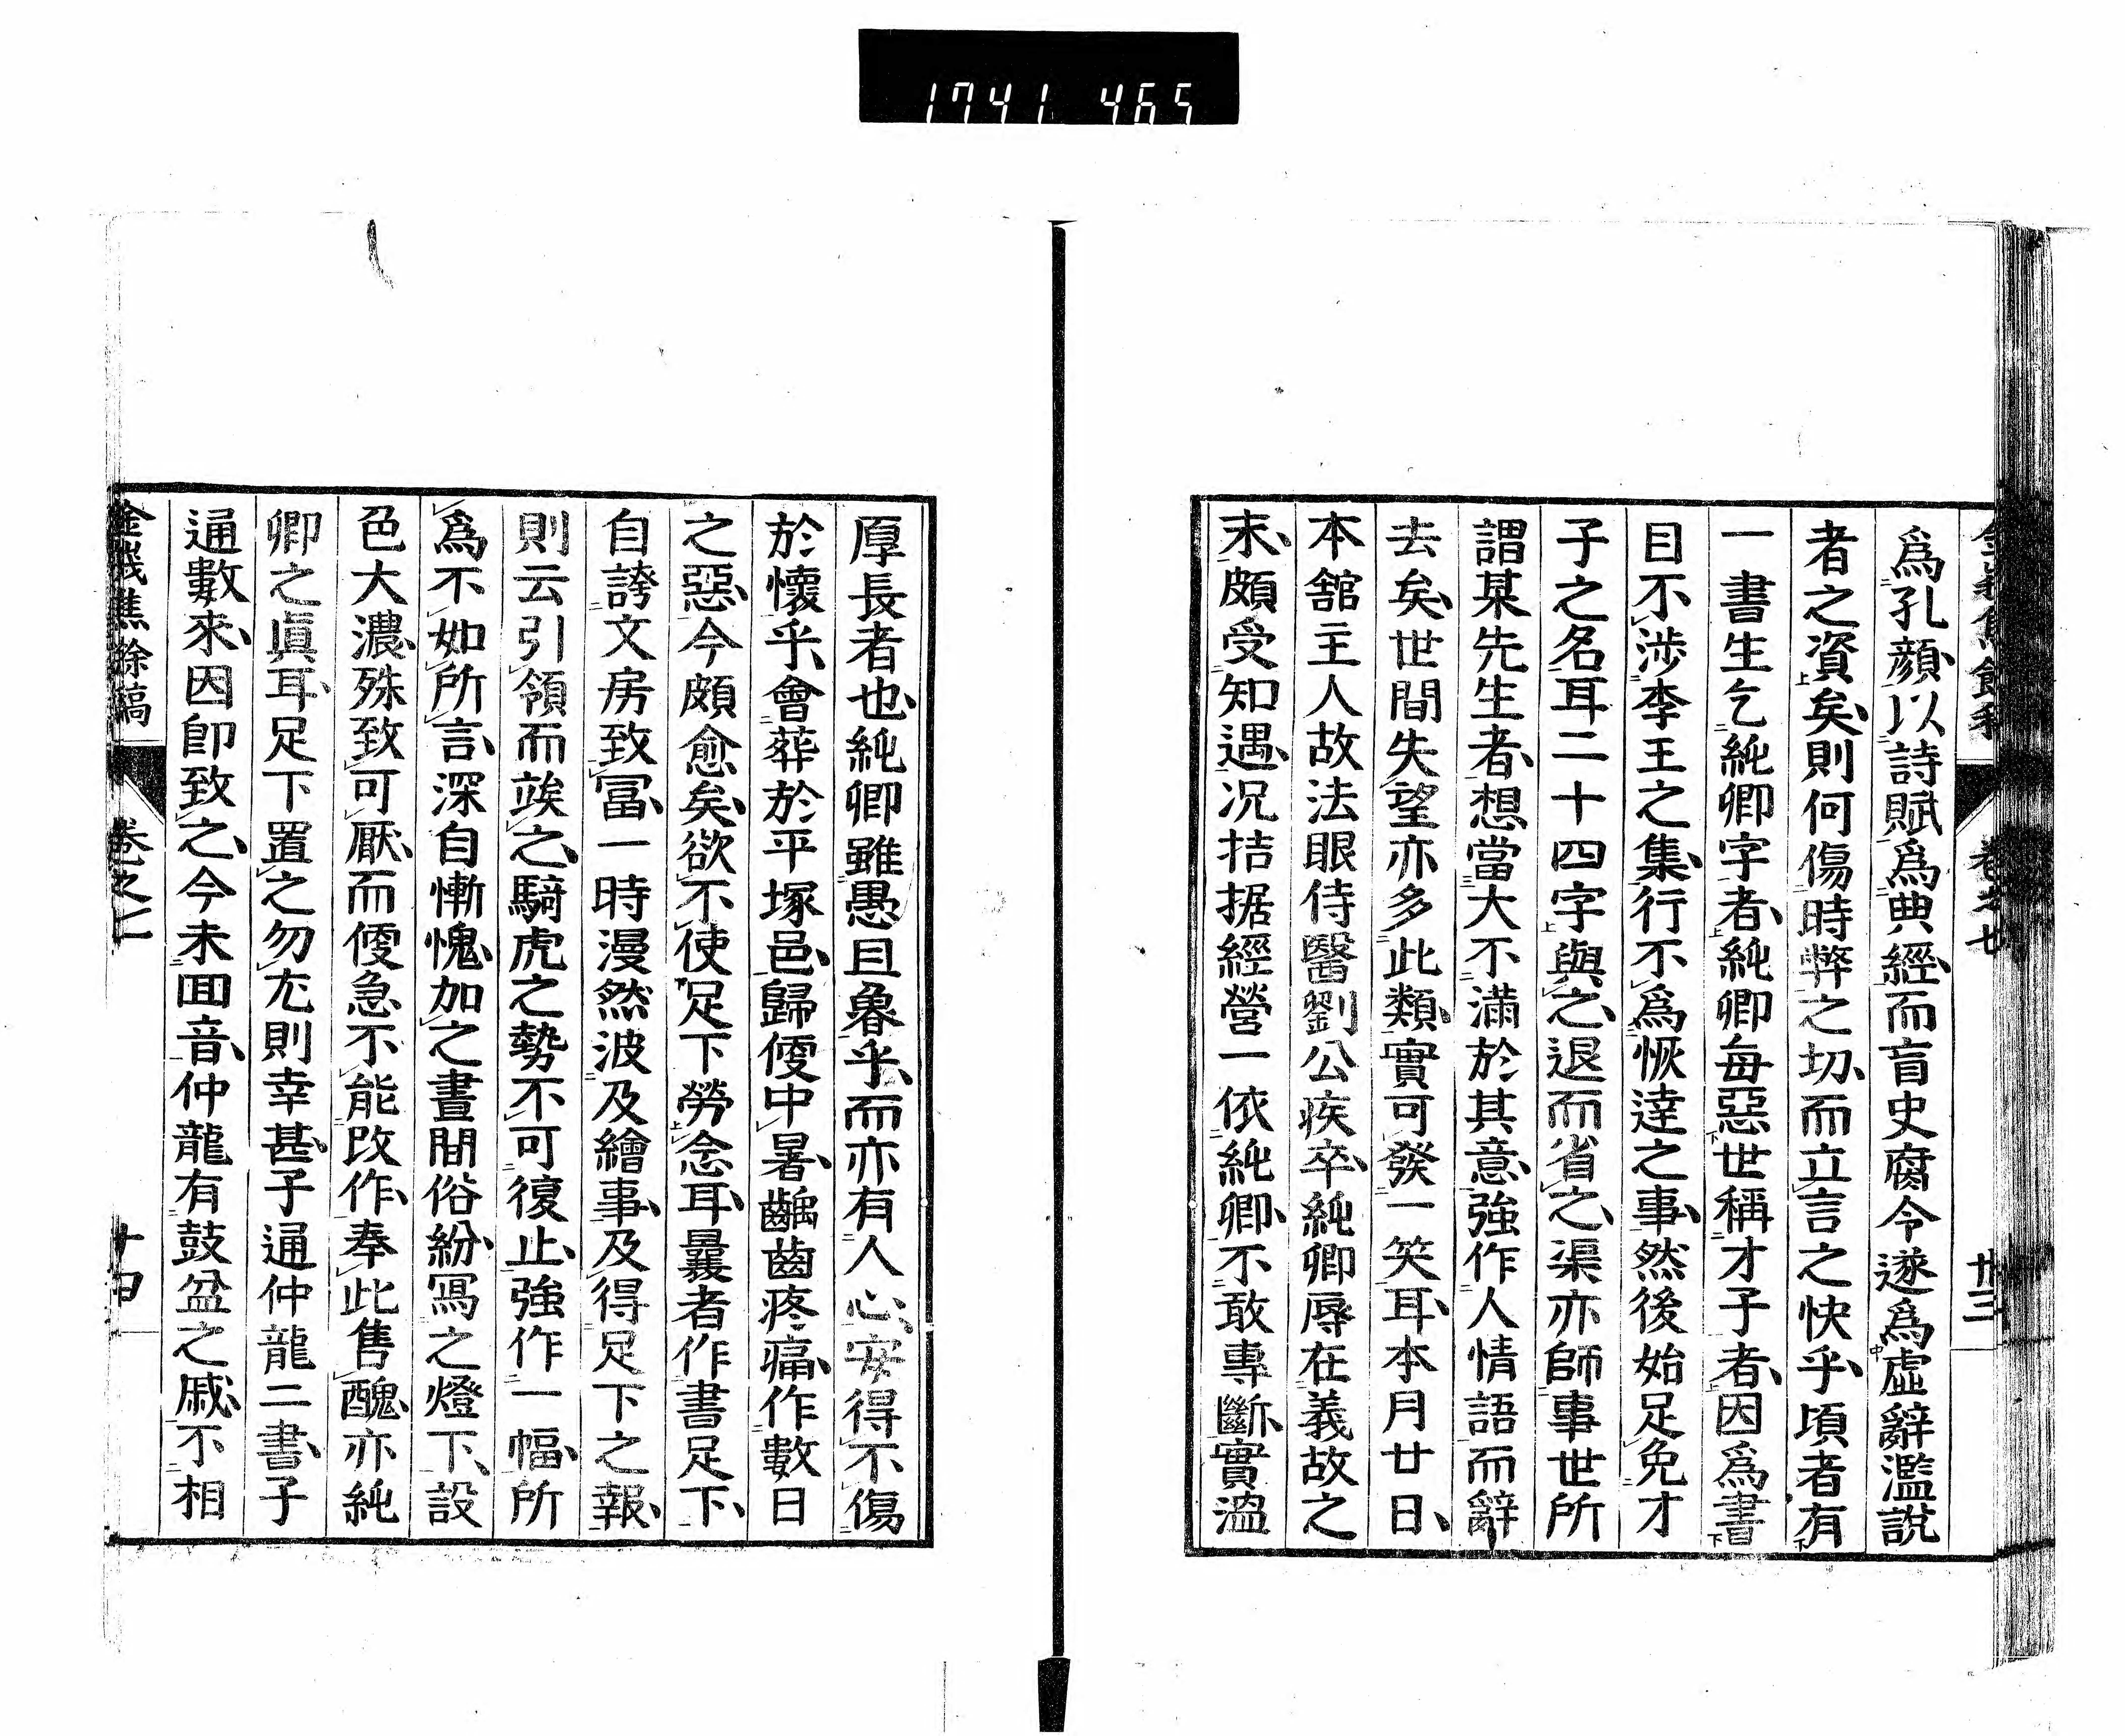 1741 465
爲孔顔以詩賦爲典經而盲史腐令遂爲虛辭濫說
者之資矣則何傷時弊之切而立言之快乎頃者有
一書生乞純卿字者純卿每惡世稱才子者因爲書
目不涉李王之集行不爲恢達之事然後始足免才
子之名耳二十四字與之退而省之渠亦師事世所
謂某先生者想當大不滿於其意強作人情語而辭
去矣世間失望亦多此類實可發一笑耳本月廿日
本舘主人故法眼侍醫劉公疾卒純卿辱在義故之
末頗受知遇况拮据經營一依純卿不敢專斷實溘
厚長者也純卿雖愚且魯乎而亦有人心安得不傷
於懷乎會葬於平塚邑歸便中暑齲齒疼痛作數日
之惡今頗愈矣欲不使足下勞念耳曩者作書足下
自誇文房致冨一時漫然波及繪事及得足下之報
則云引領而竢之騎虎之勢不可復止強作一幅所
爲不如所言深自慚愧加之晝間俗紛冩之燈下設
色大濃殊致可厭而便急不能改作奉此售醜亦純
卿之眞耳足下置之勿尤則幸甚子通仲龍二書子
通數來因卽致之今未囬音仲龍有鼓盆之戚不相
金峨焦餘稿 卷之 十四